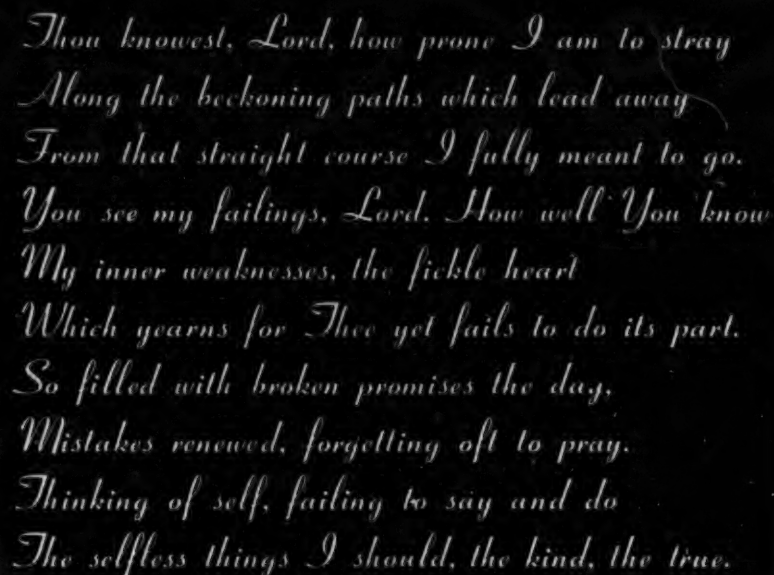 Thou knowest, Lord, how prone I am to stray
Along the beckoning paths which lead away
From that straight course I fully meant to go.
You see my failings, Lord. How well You know
My inner weaknesses, the fickle heart
Which yearns for Thee yet fails to do its part.
So filled with broken promises the day,
Mistakes renewed, forgetting oft to pray.
Thinking of self, failing to say and do
The selfless things I should, the kind, the true.